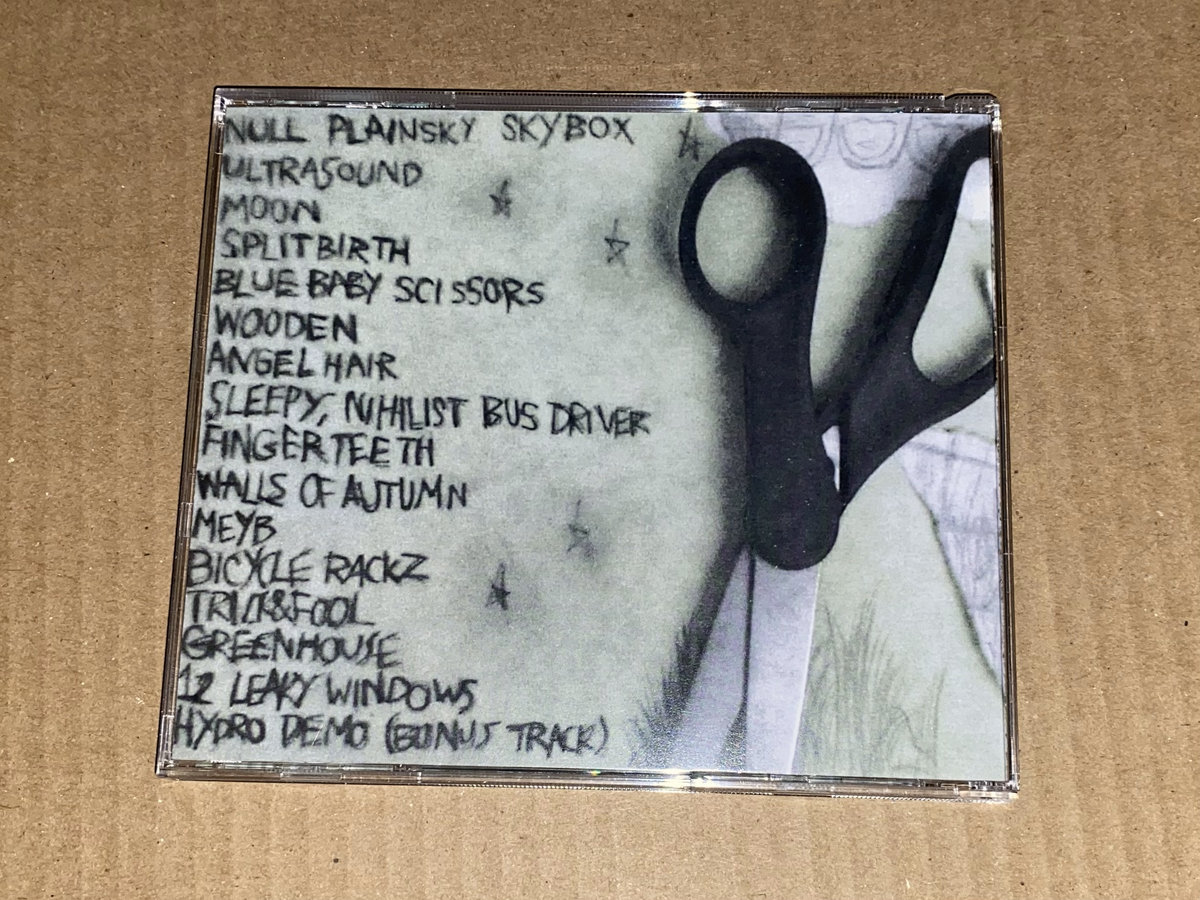 NULL PLAINSKY SKYBOX
ULTRASOUND
MOON
SPLITBIRTH
BLUE BABY SCISSORS
WOODEN
ANGEL HAIR
SLEEPY, NIHILIST BUS DRIVER
FINGERTEETH
WALLS OF AUTUMN
MEYB
BICYCLE RACKZ
TRICK&FOOL
GREENHOUSE
12 LEAKY WINDOWS
HYDRO DEMO (BONUS TRACK)